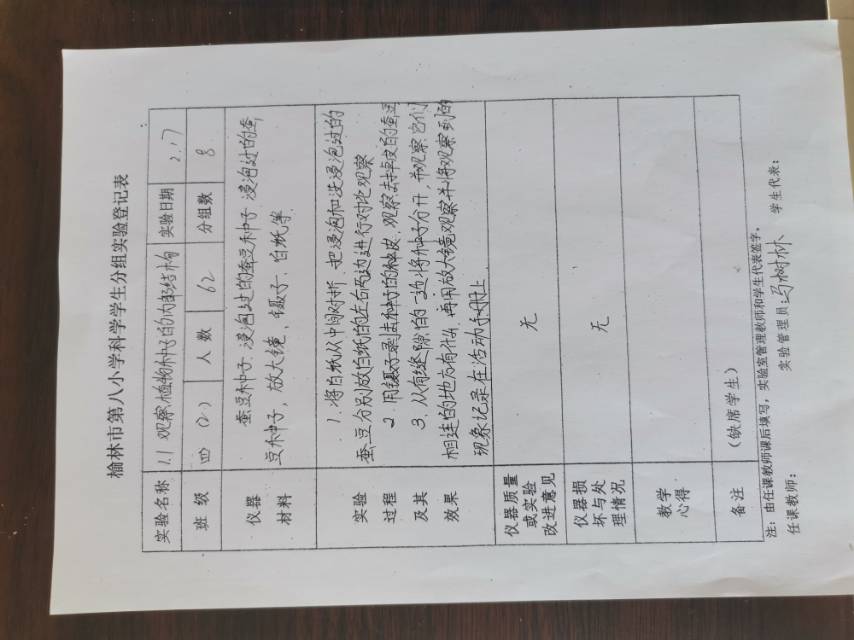 榆林市第八小学科学学生分组实验登记表
实验名称 1.1 观察植物种子的内部结构 实验日期 2.17
班 级 四(2) 人 数 62 分组数 8
仪器
材料
蚕豆种子、浸泡过的蚕豆种子 浸泡过的蚕
豆种子,放大镜、镊子、白纸等
实验
过程
及其
效果
1. 将白纸从中间对折,把浸泡和没浸泡过的
蚕豆分别放白纸的左右两边进行对比观察
2. 用镊子剥去种子的种皮,观察去掉皮的蚕豆
3. 从有缝隙的一边将种子分开,并观察它们
相连的地方有什么,再用放大镜观察并将观察到的
现象记录在活动手册上
仪器质量
或实验
改进意见
无
仪器损
坏与处
理情况
无
教学
心得
备注
(缺席学生)
注:由任课教师课后填写,实验室管理教师和学生代表签字。
任课教师: 实验管理员:马树林 学生代表: